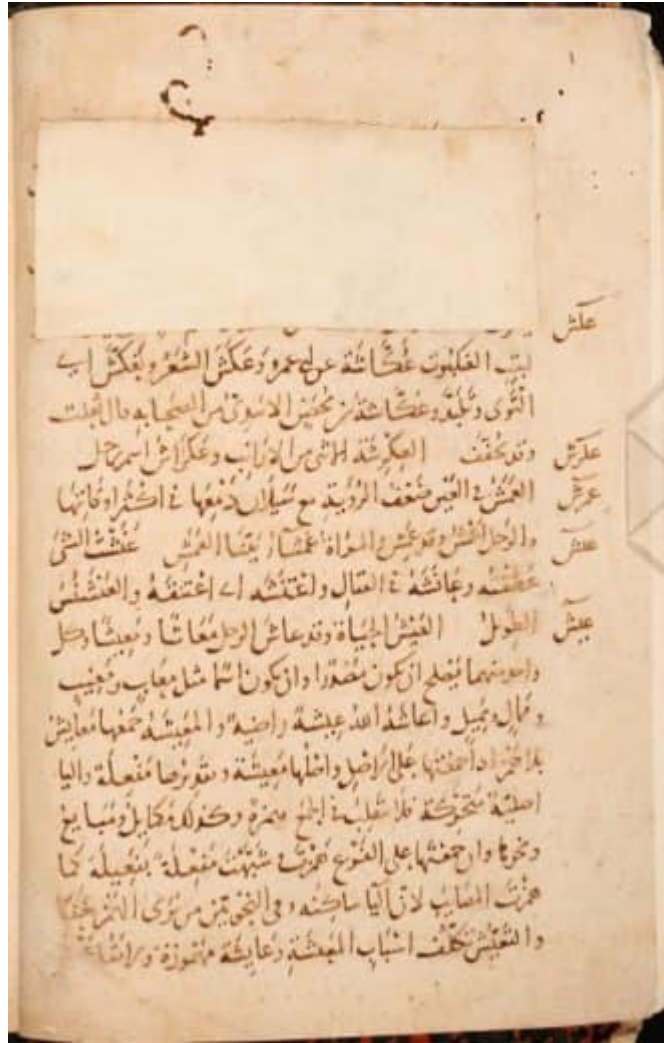 عكش
لبيت العنكبوت عُكَّاشَة عن ابى عمرو وعَكَشَ الشَعْرُ وتَعَكَّشَ اى
الْتَوَى وتَلَبَّدَ وعُكَّاشَة بن مِحْصَن الاسدى من الصحابه قال ثعلب
عكرش وقد يخفف العِكْرِشَة الانثى من الارانب وعِكْرَاش اسم رجل
عمش العَمَشُ فى العَيْن ضَعْفُ الرُؤْيَةِ مع سَيَلَان دَمْعِها فى اكثر اوقاتها
عنش والرجل اَعْمَش وقد عَمِشَ والمراة عَمْشَاءُ بَيِّنَا العَمَشِ عَنَشْتُ الشَىْ
عَطَفْتُه وعَانَشَهُ فى القتال واعْتَنَشَه اى اعْتَنَقَهُ والعَنَشْنَشُ
عيش الطويل العَيْشُ الحَيَاة وقد عاش الرجل مَعَاشًا ومَعِيشًا وكل
واحد منهما يَصْلُح ان يكون مَصْدَرا وان يكون اسْمًا مثل مَعَاب ومَعِيب
ومَمَال ومَمِيل واعَاشَهُ الله عِيشَة راضية والمَعِيشَة جَمْعُها مَعَايِش
بلا همز اذا جمعتها عَلى الاصل واصلها مَعْيِشَة وتقديرها مَفْعِلَة واليا
اصلية مُتَحَرِّكَة فلا تنقلب فى الجمع همزة وكذلك مَكَايِل ومَبَايِع
ونحوها وان جمعتها على الفَرْع هَمَزْتَ وشَبَّهْتَ مَفْعِلَة بفَعِيلَة كما
همزت المصايب لان اليا ساكنه وفى النحويين من يرى الهمز لحنا
والتَعَيُّش تَكَلُّف اسْبَاب المَعِيشَةِ وعَايِشَة مَهْمُوزَة ولا تقل